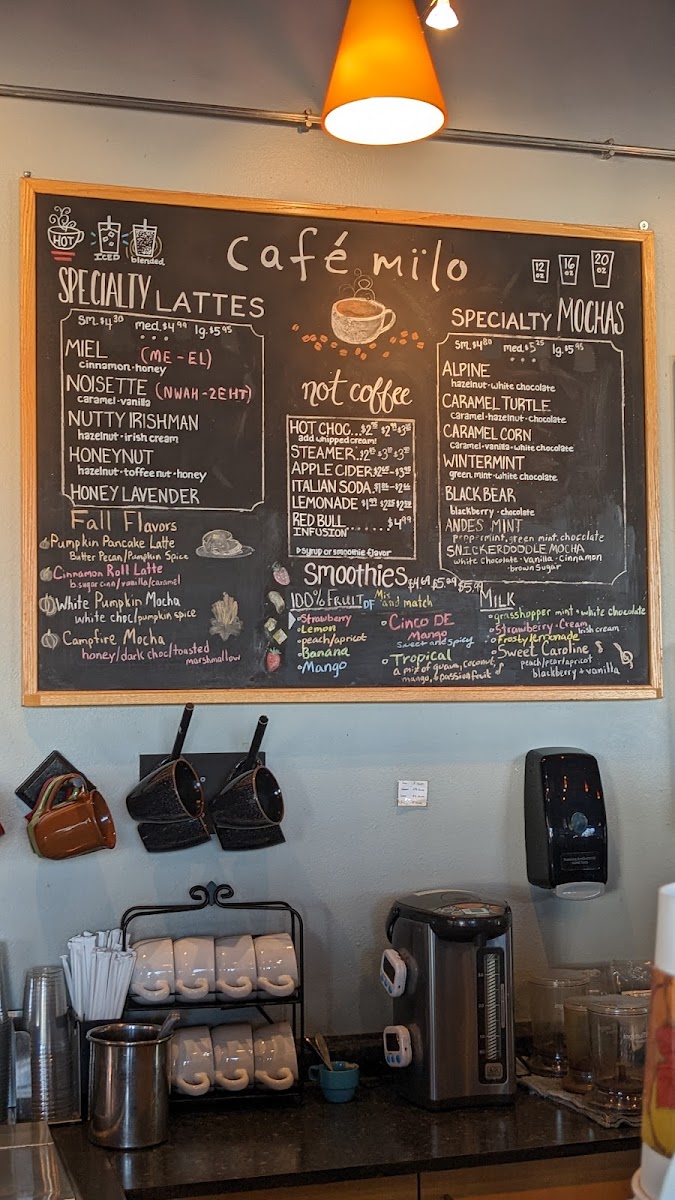 HOT
ICED
blended
Café mïlo
12 oz
16 oz
20 oz
SPECIALTY LATTES
sm. $4.30 med. $4.99 lg. $5.95
MIEL (ME-EL)
cinnamon·honey
NOISETTE (NWAH-ZEHT)
caramel·vanilla
NUTTY IRISHMAN
hazelnut·irish cream
HONEYNUT
hazelnut·toffee nut·honey
HONEY LAVENDER
Fall Flavors
Pumpkin Pancake Latte
Butter Pecan/Pumpkin Spice
Cinnamon Roll Latte
b.sugar cinn/vanilla/caramel
White Pumpkin Mocha
white choc/pumpkin spice
Campfire Mocha
honey/dark choc/toasted
marshmallow
not coffee
HOT CHOC...
add whipped cream!
STEAMER.
APPLE CIDER
ITALIAN SODA
LEMONADE
RED BULL......$4.99
INFUSION
syrup or smoothie flavor
SPECIALTY MOCHAS
sm. $4.80 med. $5.25 lg. $5.95
ALPINE
hazelnut·white chocolate
CARAMEL TURTLE
caramel·hazelnut·chocolate
CARAMEL CORN
caramel·vanilla·white chocolate
WINTERMINT
green mint·white chocolate
BLACK BEAR
blackberry·chocolate
ANDES MINT
peppermint, green mint, chocolate
SNICKERDOODLE MOCHA
white chocolate·vanilla·cinnamon
·brown sugar
Smoothies $4.69 $5.09 $5.99
100% FRUIT Mix and match
Strawberry
Lemon
peach/apricot
Banana
Mango
CINCO DE
Mango
Sweet and Spicy
Tropical
a mix of guava, coconut,
mango, & passion fruit
MILK
grasshopper mint·white chocolate
Strawberry·Cream
Frosty lemonade Irish cream
Sweet Caroline
peach/pear/apricot
blackberry + vanilla